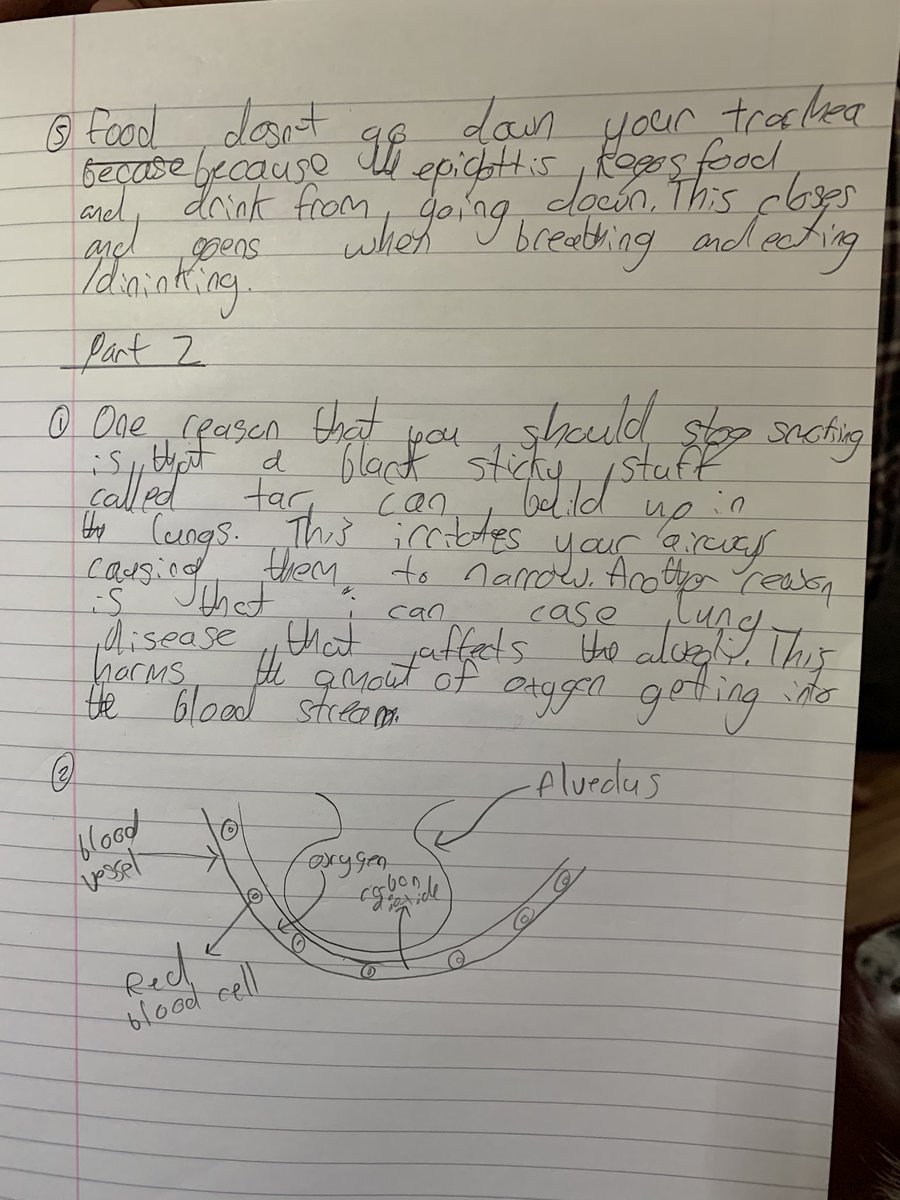 ⑤ Food dosn't go down your trachea
because because the epiglottis keeps food
and drink from going down. This closes
and opens when breathing and eating
/dininking.
Part 2
① One reason that you should stop smoking
is that a black sticky stuff
called tar can build up in
the lungs. This irritates your airways
causing them to narrow. Another reason
is that i can case lung
disease that affects the alveoli. This
harms the amout of oxygen getting into
the blood stream.
②
Alveolus
blood
vessel
oxygen
carbon
dioxide
Red
blood cell